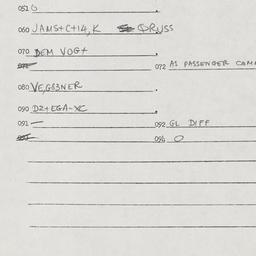 051 0
060 JAMS+C+14,K ORUSS
070 DEM VOG+
072 A1 PASSENGER COM
080 VE,G83NER
090 D2+EGA-XC
091 —
092 GL DIFF
096 0